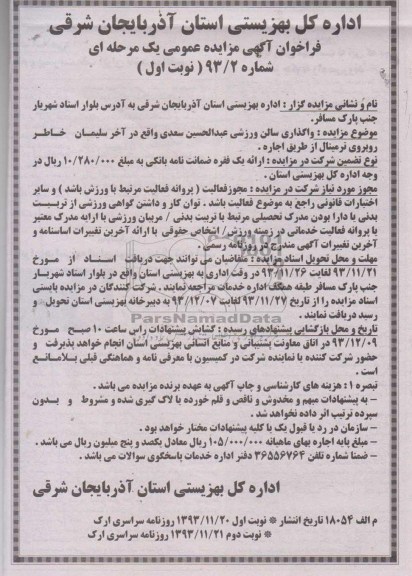 اداره کل بهزیستی استان آذربایجان شرقی
فراخوان آگهی مزایده عمومی یک مرحله ای
شماره ۹۳/۲ ( نوبت اول )
نام و نشانی مزایده گزار : اداره بهزیستی استان آذربایجان شرقی به آدرس بلوار استاد شهریار
جنب پارک مسافر.
موضوع مزایده : واگذاری سالن ورزشی عبدالحسین سعدی واقع در آخر سلیمان خاطر
روبروی ترمینال از طریق اجاره .
نوع تضمین شرکت در مزایده : ارائه یک فقره ضمانت نامه بانکی به مبلغ ۱۰/۲۸۰/۰۰۰ ریال در
وجه اداره کل بهزیستی استان .
مجوز مورد نیاز شرکت در مزایده : مجوزفعالیت ( پروانه فعالیت مرتبط با ورزش باشد ) و سایر
اختیارات قانونی راجع به موضوع فعالیت باشد . توان کار و داشتن گواهی ورزشی از تربیت
بدنی یا دارا بودن مدرک تحصیلی مرتبط با تربیت بدنی / مربیان ورزشی با ارایه مدرک معتبر
یا پروانه فعالیت خدماتی در زمینه ورزش/ اشخاص حقوقی با ارائه آخرین تغییرات اساسنامه و
آخرین تغییرات آگهی مندرج در روزنامه رسمی.
مهلت و محل تحویل اسناد مزایده : متقاضیان می توانند جهت دریافت اسناد از مورخ
۹۳/۱۱/۲۱ لغایت ۹۳/۱۱/۲۶ در وقت اداری به بهزیستی استان واقع در بلوار استاد شهریار
جنب پارک مسافر طبقه همکف اداره خدمات مراجعه نمایند . شرکت کنندگان در مزایده بایستی
اسناد مزایده را از تاریخ ۹۳/۱۱/۲۷ لغایت ۹۳/۱۲/۰۷ به دبیرخانه بهزیستی استان تحویل و
رسید دریافت نمایند .
ParsNamadData
تاریخ و محل بازگشایی پیشنهادهای رسیده : گشایش پیشنهادات راس ساعت ۱۰ صبح مورخ
۹۳/۱۲/۰۹ در اتاق معاونت پشتیبانی و منابع انسانی بهزیستی استان انجام خواهد پذیرفت و
حضور شرکت کننده یا نماینده شرکت در کمیسیون با معرفی نامه و هماهنگی قبلی بلامانع
است :
تبصره ۱ : هزینه های کارشناسی و چاپ آگهی به عهده برنده مزایده می باشد .
– به پیشنهادات مبهم و مخدوش و ناقص و قلم خورده یا لاک گیری شده و مشروط و بدون
سپرده ترتیب اثر داده نخواهد شد .
– سازمان در رد یا قبول یک یا کلیه پیشنهادات مختار خواهد بود .
– مبلغ پایه اجاره بهای ماهیانه ۱۰۵/۰۰۰/۰۰۰ ریال معادل یکصد و پنج میلیون ریال می باشد .
– ضمنا شماره تلفن ۳۶۵۵۶۷۶۴ دفتر اداره خدمات پاسخگوی سوالات می باشد .
اداره کل بهزیستی استان آذربایجان شرقی
م الف ۱۸۰۵۴ تاریخ انتشار * نوبت اول ۱۳۹۳/۱۱/۲۰ روزنامه سراسری ارک
* نوبت دوم ۱۳۹۳/۱۱/۲۱ روزنامه سراسری ارک